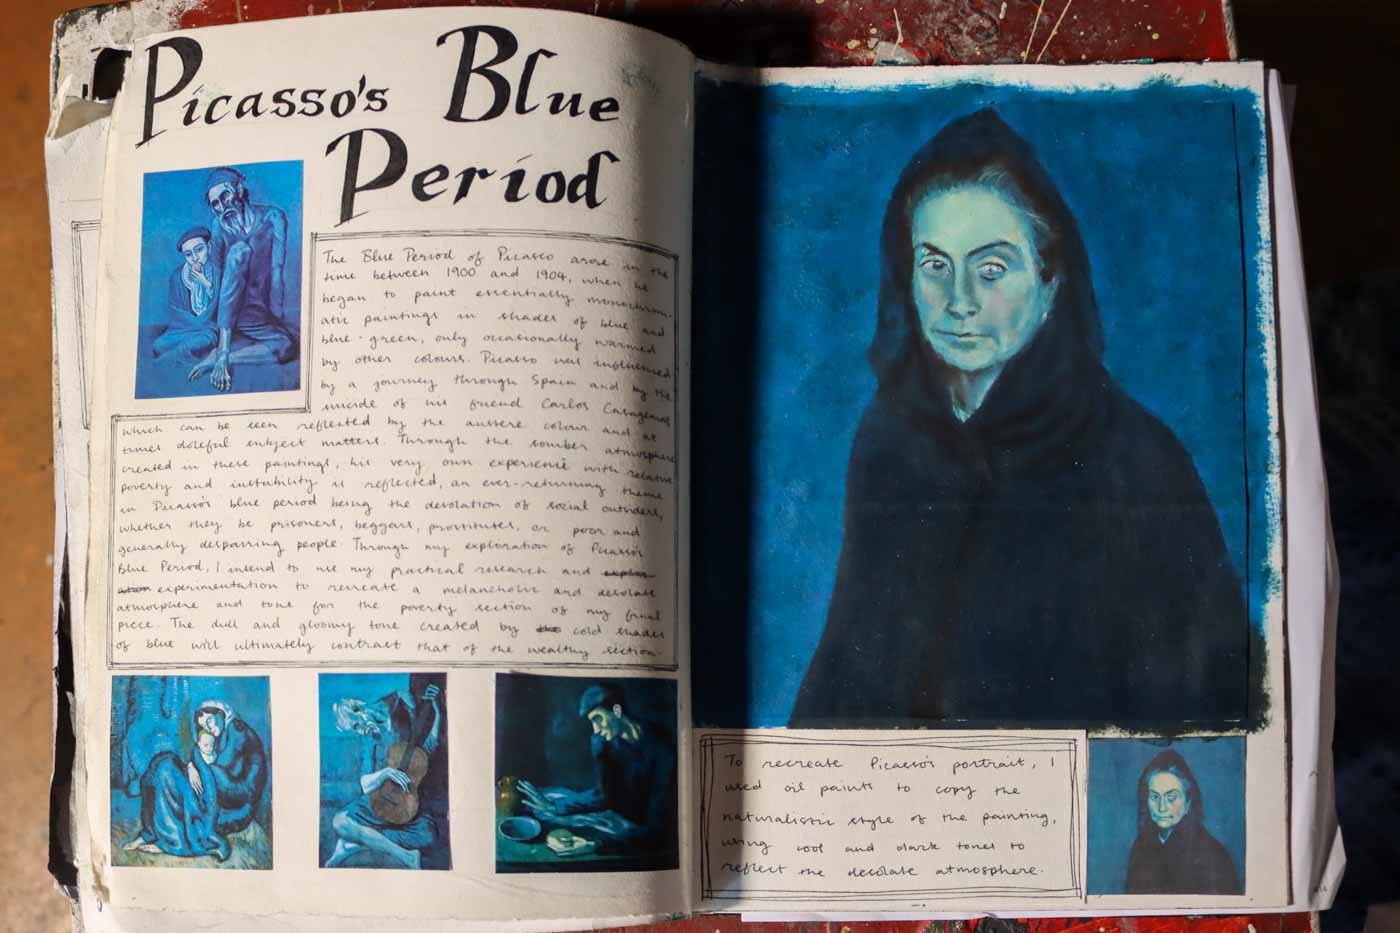 Picasso's Blue
Period
The Blue Period of Picasso arose in the
time between 1900 and 1904, when he
began to paint essentially monochrom-
atic paintings in shades of blue and
blue-green, only occasionally warmed
by other colours. Picasso was influenced
by a journey through Spain and by the
suicide of his friend Carlos Casagemas
which can be seen reflected by the austere colour and at
times doleful subject matters. Through the somber atmosphere
created in these paintings, his very own experience with relative
poverty and instability is reflected, an ever-returning theme
in Picasso's blue period being the desolation of social outsiders,
whether they be prisoners, beggars, prostitutes, or poor and
generally despairing people. Through my exploration of Picasso's
Blue Period, I intend to use my practical research and explor-
ation experimentation to recreate a melancholic and desolate
atmosphere and tone for the poverty section of my final
piece. The dull and gloomy tone created by the cold shades
of blue will ultimately contrast that of the wealthy section.
To recreate Picasso's portrait, I
used oil paints to copy the
naturalistic style of the painting,
using cool and dark tones to
reflect the desolate atmosphere.